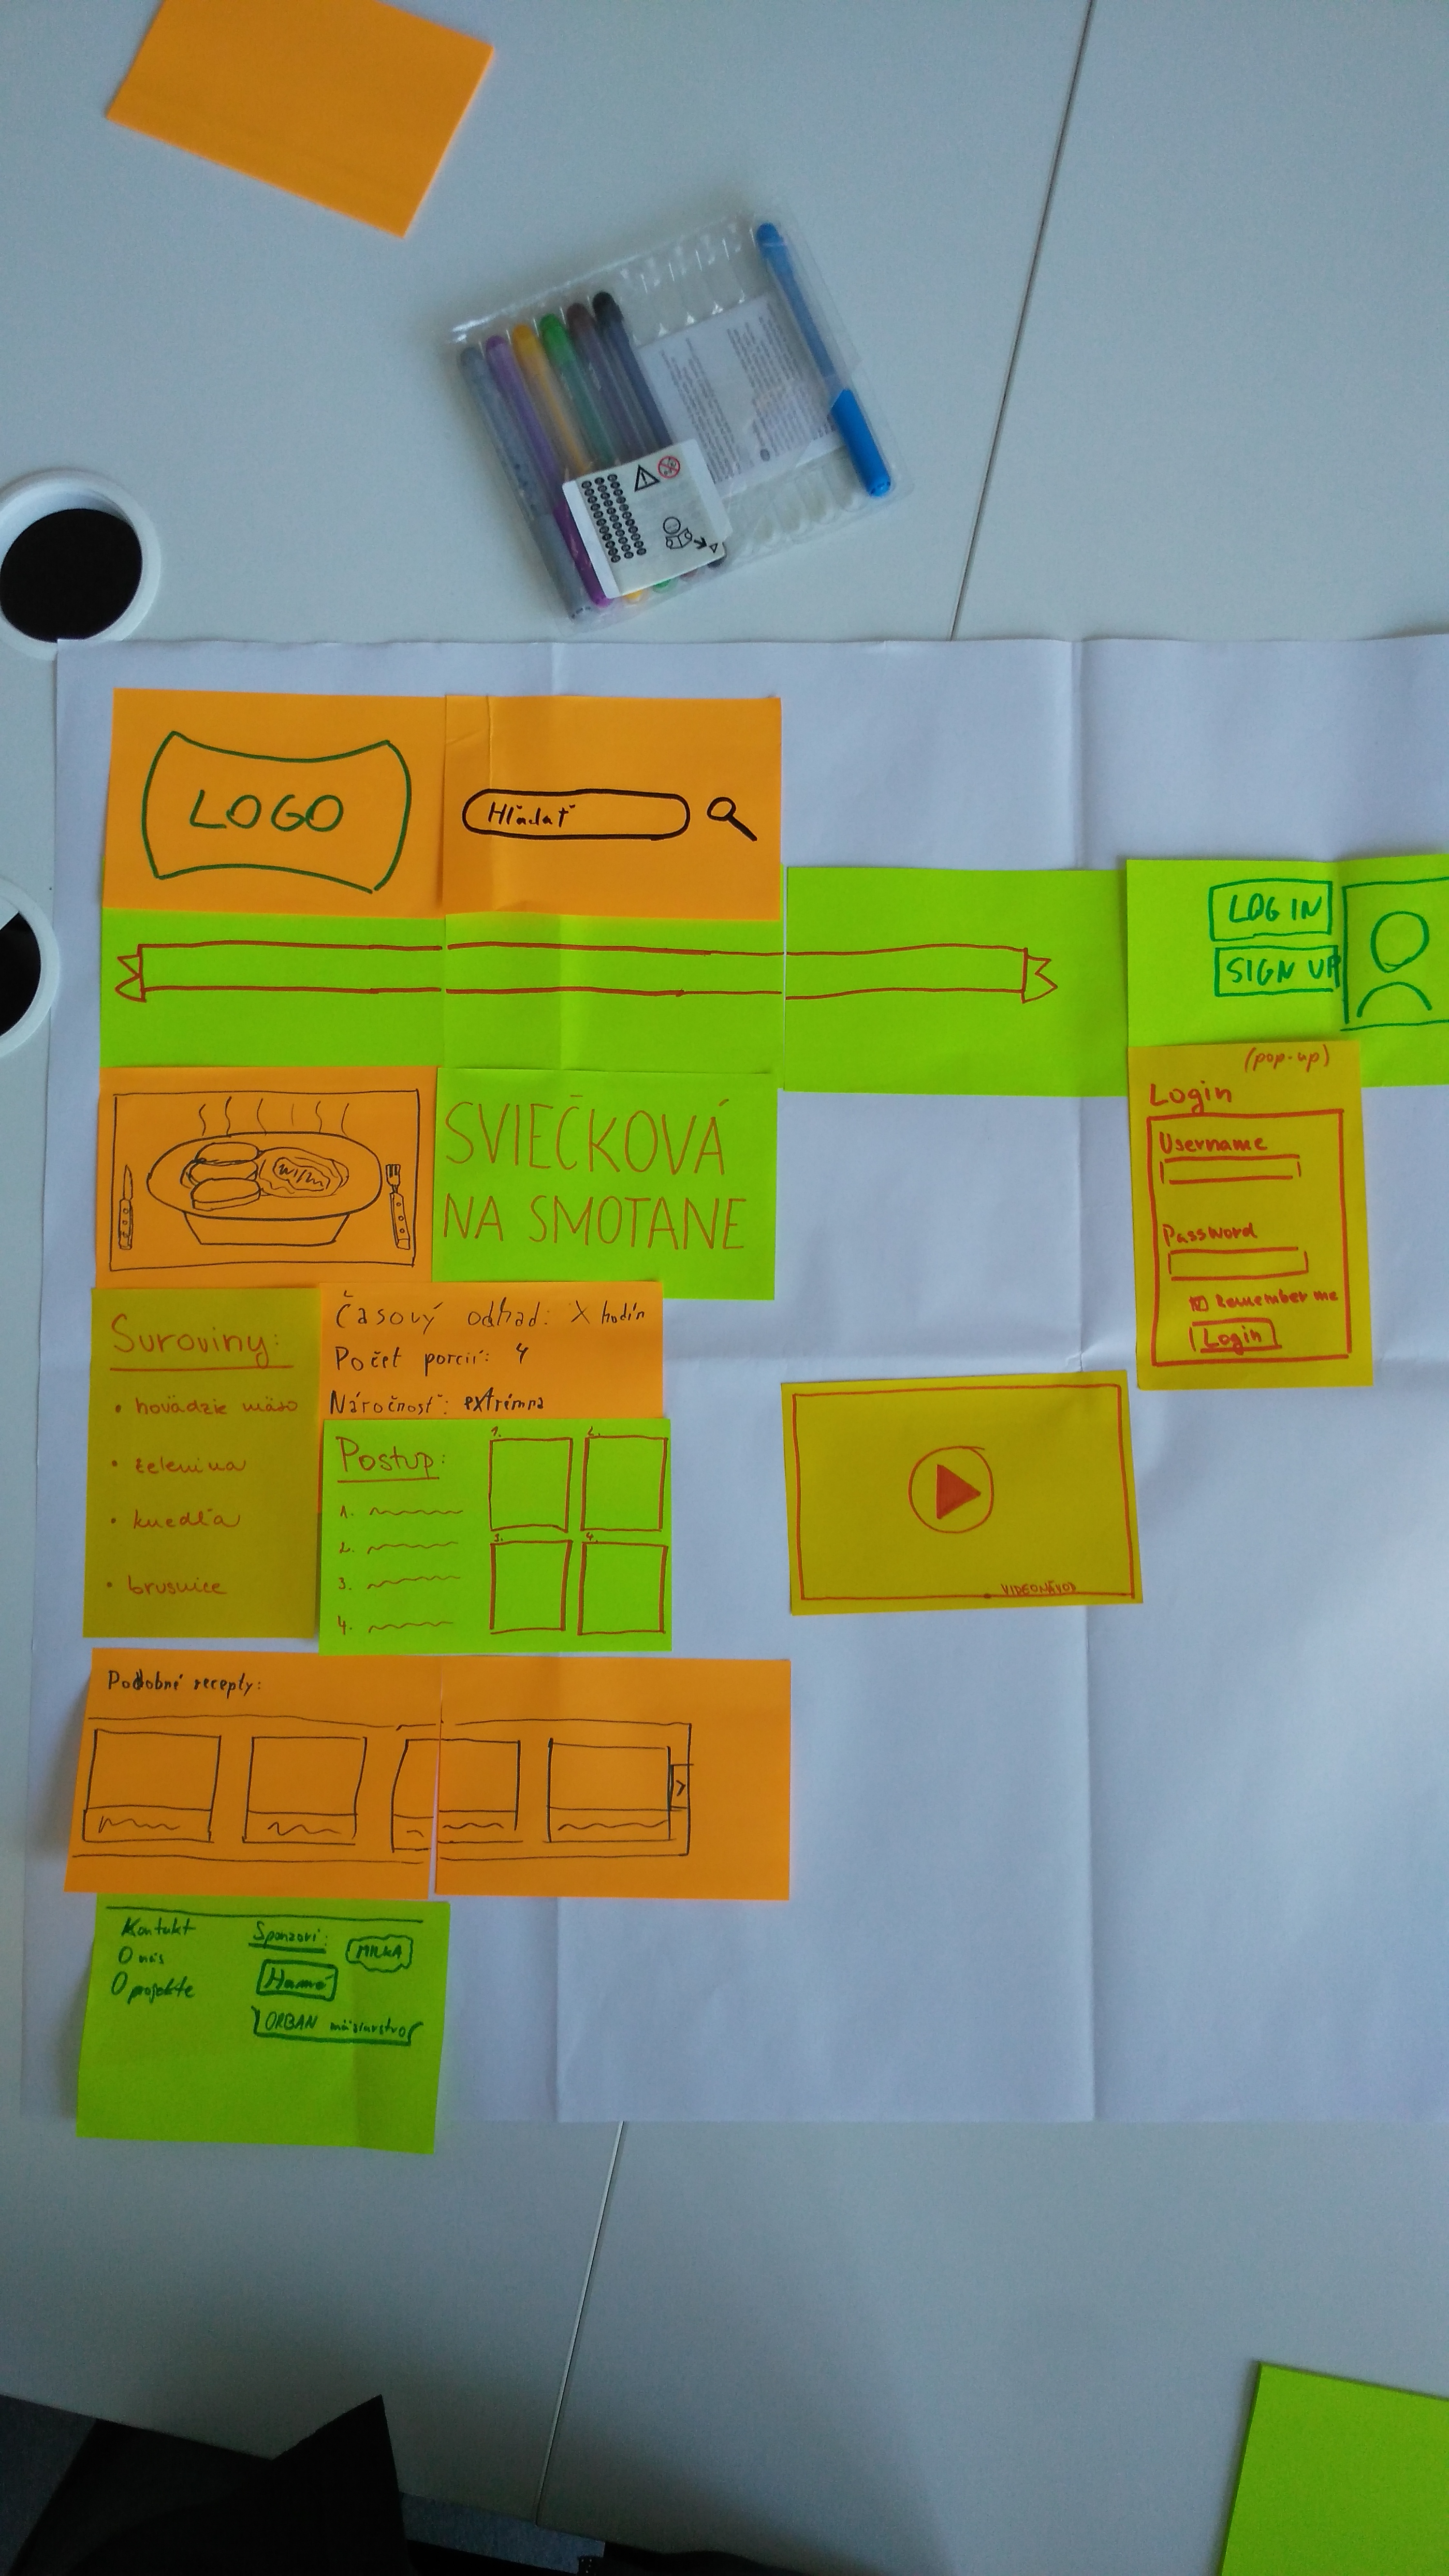 LOGO
Hľadať
LOG IN
SIGN UP
(pop-up)
Login
Username
Password
Remember me
Login
SVIEČKOVÁ
NA SMOTANE
Suroviny:
• hovädzie mäso
• zelenina
• knedľa
• brusnice
Časový odhad: X hodín
Počet porcií: 4
Náročnosť: extrémna
Postup:
1.
2.
3.
4.
1.
2.
3.
4.
VIDEONÁVOD
Podobné recepty:
Kontakt
O nás
O projekte
Sponzori:
MILKA
Hamé
ORBAN mäsiarstvo